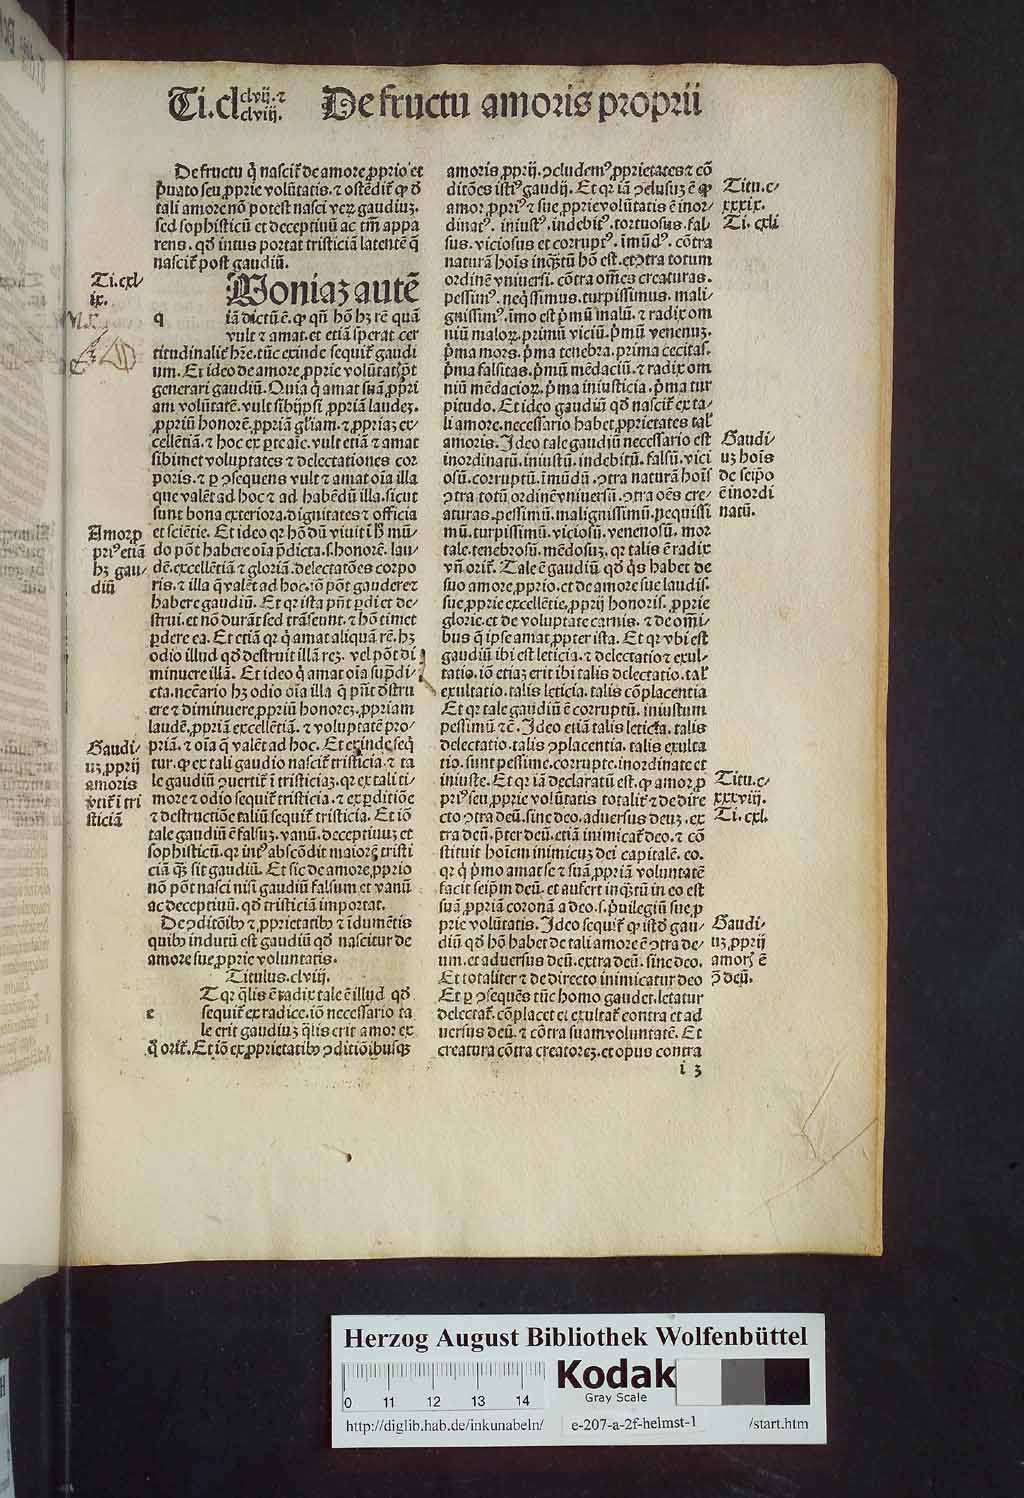 Ti.cl clvij.⁊ clviij. De fructu amoris proprii
De fructu q̇ nascit᷑ de amore ꝓprio et
p̃uato seu ꝓprie volũtatis.⁊ ostẽdit᷑ ꝙ ð
tali amore nõ potest nasci veꝝ gaudiuʒ.
sed sophisticũ et deceptiuũ ac tm̃ appa
rens. qð intus portat tristiciã latentẽ q̃
nascit᷑ post gaudiũ.
Ti.cxl⸗
ix.
Uoniaʒ autẽ
q iã dictũ ẽ.ꝙ qñ hõ hʒ rẽ quã
vult ⁊ amat.et etiã sperat cer
titudinalit᷑ h̃re.tũc exinde sequit᷑ gaudi
um. Et ideo de amore ꝓprie volũtat᷒ pñt
generari gaudiũ. Quia q̇ amat suã ꝓpri
am volũtatẽ.vult sibijpsi ꝓpriã laudeʒ.
ꝓpriũ honorẽ.ꝓpriã gl'iam.⁊ ꝓpriaʒ ex⸗
cellẽtiã.⁊ hoc ex ꝑte aĩe.vult etiã ⁊ amat
sibimet voluptates ⁊ delectationes cor
poris.⁊ ꝑ ꝯsequens vult ⁊ amat oĩa illa
que valẽt ad hoc ⁊ ad habẽdũ illa.sicut
sunt bona exteriora.dignitates ⁊ officia
Amor ꝓ
pri⁹ etiã
hʒ gau⸗
diũ
et sciẽtie. Et ideo qr hõ dũ viuit ĩ h̾ mũ⸗
do põt habere oĩa p̃dicta.s.honorẽ.lau⸗
dẽ.excellẽtiã ⁊ gloriã.delectatões corpo
ris.⁊ illa q̃ valẽt ad hoc.iõ põt gaudere ⁊
habere gaudiũ. Et qr ista pñt ꝑdi et de⸗
strui.et nõ durãt sed trãseunt.⁊ hõ timet
ꝑdere ea. Et etiã qr q̇ amat aliquã rẽ.hʒ
odio illud qð destruit illã reʒ. vel põt di
minuere illã. Et ideo q̇ amat oĩa sup̃di⸗
cta.necẽario hʒ odio oĩa illa q̃ pñt ðstru
ere ⁊ diminuere ꝓpriũ honoreʒ.ꝓpriam
laudẽ.ꝓpriã excellẽtiã.⁊ voluptatẽ pro⸗
Gaudi⸗
uʒ ꝓprij
amoris
v̾tit᷑ ĩ tri
sticiã
priã.⁊ oĩa q̃ valẽt ad hoc. Et exinde seq̇
tur.ꝙ ex tali gaudio nascit᷑ tristicia.⁊ ta
le gaudiũ ꝯuertit᷑ ĩ tristiciaʒ.qr ex tali ti⸗
more ⁊ odio sequit᷑ tristicia.⁊ ex ꝑditiõe
⁊ destructiõe taliũ sequit᷑ tristicia. Et iõ
tale gaudiũ ẽ falsuʒ.vanũ.deceptiuuʒ et
sophisticũ.qr int⁹ abscõdit maiorẽ tristi
ciã q̃ʒ sit gaudiũ. Et sic de amore ꝓprio
nõ põt nasci nisi gaudiũ falsum et vanũ
ac deceptiuũ. qð tristiciã importat.
De ꝯditõibꝰ ⁊ ꝓprietatibꝰ ⁊ ĩdumẽtis
quibꝰ indutũ est gaudiũ qð nascitur de
amore sue ꝓprie voluntatis.
Titulus.clviij.
e T qr q̃lis ẽ radix tale ẽ illud qð
sequit᷑ ex radice.iõ necessario ta
le erit gaudiuʒ q̃lis erit amor ex
q̊ orit᷑. Et iõ ex ꝓprietatibꝰ ꝯditiõibusqʒ
amoris ꝓprij.ꝯcludem⁹ ꝓprietates ⁊ cõ
ditões isti⁹ gaudij. Et qr iã ꝯclusuʒ ẽ ꝙ
amor ꝓpri⁹ ⁊ sue ꝓprie volũtatis ẽ inor⸗
dinat⁹. iniust⁹.indebit⁹.tortuosus.fal
sus.viciosus et corrupt⁹.ĩmũd⁹. cõtra
naturã hoĩs inqʒtũ hõ est.et ꝯtra totum
ordinẽ vniuersi. cõtra oẽs creaturas.
pessim⁹.neq̇ssimus.turpissimus.mali⸗
gnissim⁹.ĩmo est p̃mũ malũ.⁊ radix om
niũ maloꝝ.primũ viciũ.p̃mũ venenuʒ.
p̃ma mors.p̃ma tenebra.prima cecitas.
p̃ma falsitas.p̃mũ mẽdaciũ.⁊ radix om
niũ mẽdacioꝝ.p̃ma iniusticia.p̃ma tur
pitudo. Et ideo gaudiũ qð nascit᷑ ex ta⸗
li amore.necessario habet ꝓprietates tal᷒
amoris. Ideo tale gaudiũ necessario est
inordinatũ.iniustũ.indebitũ.falsũ.vici
osũ.corruptũ.ĩmũdũ.ꝯtra naturã hoĩs
ꝯtra totũ ordinẽ vniuersũ.ꝯtra oẽs cre⸗
aturas.pessimũ.malignissimũ.nequissi
mũ.turpissimũ.viciosũ.venenosũ. mor
tale.tenebrosũ.mẽdosuʒ.qr talis ẽ radix
vñ orit᷑. Tale ẽ gaudiũ qð q̇s habet de
suo amore ꝓprio.et de amore sue laudis.
sue ꝓprie excellẽtie.ꝓprij honoris.ꝓprie
glorie.et de voluptate carnis.⁊ de omĩ⸗
bus q̃ ipse amat ꝓpter ista. Et qr vbi est
gaudiũ ibi est leticia.⁊ delectatio ⁊ exul⸗
tatio.iõ etiaʒ erit ibi talis delectatio.tal᷒
exultatio.talis leticia.talis cõplacentia
Et qr tale gaudiũ ẽ corruptũ.iniustum
pessimũ ⁊c̃. Ideo etiã talis leticia.talis
delectatio.talis ꝯplacentia.talis exulta
tio.sunt pessime.corrupte.inordinate et
iniuste. Et qr iã declaratũ est.ꝙ amor ꝓ
pri⁹ seu ꝓprie volũtatis totalit᷑ ⁊ de dire
cto ꝯtra deũ.sine deo.aduersus deuʒ.ex
tra deũ.p̃ter deũ.etiã inimicat᷑ deo.⁊ cõ
stituit hoĩem inimicuʒ dei capitalẽ. eo.
qr q̇ p̃mo amat se ⁊ suã ꝓpriã voluntatẽ
facit seip̃m deũ.et aufert inqʒtũ in eo est
suã ꝓpriã coronã a deo.s.p̃uilegiũ sue ꝓ
prie volũtatis. Ideo sequit᷑ ꝙ istð gau⸗
diũ qð hõ habet de tali amore ẽ ꝯtra de⸗
um.et aduersus deũ.extra deũ.sine deo.
Et totaliter ⁊ de directo inimicatur deo
Et ꝑ ꝯsequẽs tũc homo gaudet.letatur
delectat᷑.cõplacet ei exultat᷑ contra et ad
uersus deũ.⁊ cõtra suam voluntatẽ. Et
creatura cõtra creatoreʒ.et opus contra
i 3
Titu.c⸗
xxxix.
Ti. cxli
Gaudi⸗
uʒ hoĩs
de seip̃o
ẽ inordi
natũ.
Titu.c⸗
xxxviij.
Ti.cxl.
Gaudi⸗
uʒ ꝓprij
amor᷒ ẽ
ꝯ̃ deũ.
Herzog August Bibliothek Wolfenbüttel
0 11 12 13 14
Kodak
Gray Scale
http://diglib.hab.de/inkunabeln/ e-207-a-2f-helmst-1 /start.htm